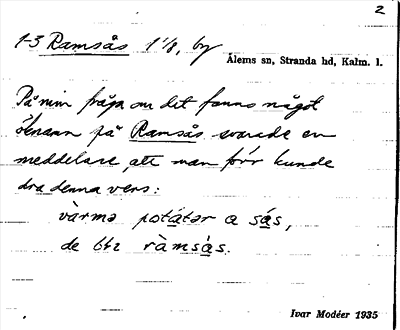 2
1-3 Ramsås 1 1/8, by
Ålems sn, Stranda hd, Kalm. l.
På min fråga om det fanns något
öknamn på Ramsås svarade en
meddelare, att man förr kunde
dra denna vers:
vàrmə potátər a sás,
de bLi ràmsás.
Ivar Modéer 1935